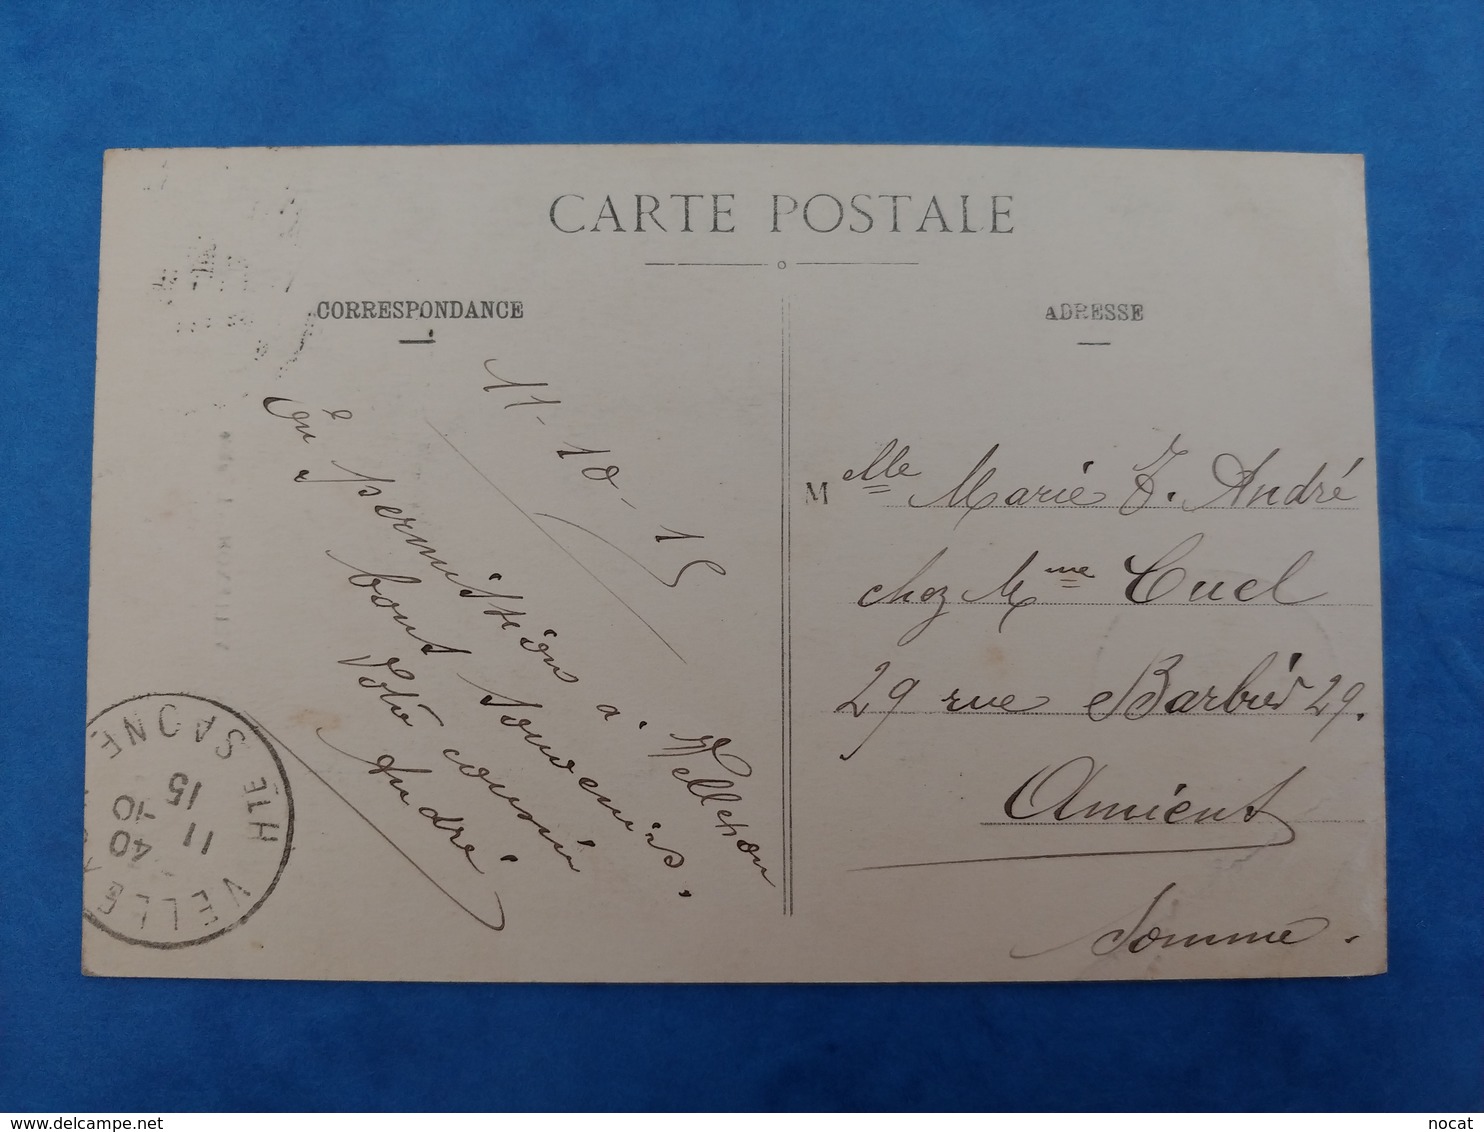 CARTE POSTALE
CORRESPONDANCE
ADRESSE
11-10-15
En permission à Vellechon
bons souvenirs.
Votre cousin
André
Melle Marie T. André
chez Mme Cuel
29 rue Barbier 29.
Amiens
Somme.
VELLE
HTE SAONE
11 40
15 10
nocat